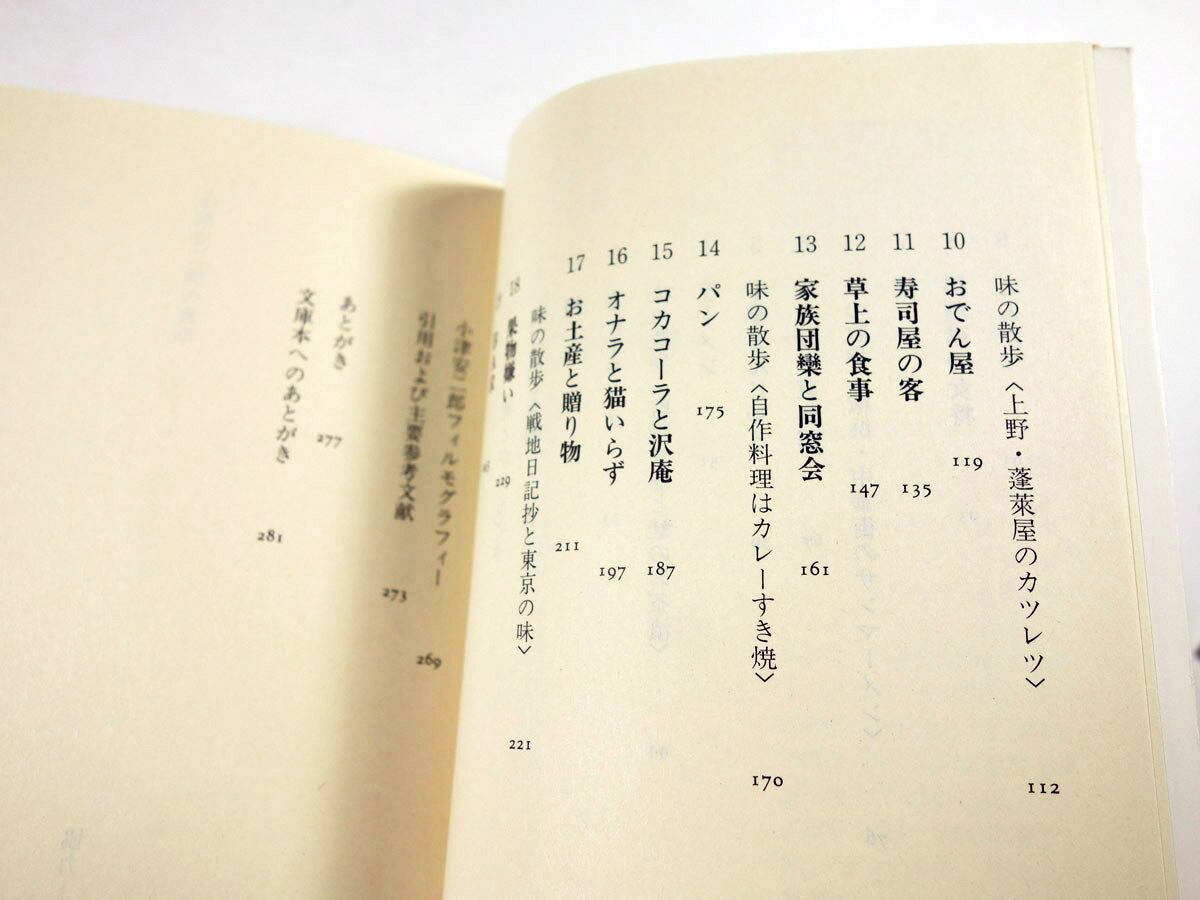 味の散歩〈上野・蓬萊屋のカツレツ〉 112
10 おでん屋 119
11 寿司屋の客 135
12 草上の食事 147
13 家族団欒と同窓会 161
味の散歩〈自作料理はカレーすき焼〉 170
14 パン 175
15 コカコーラと沢庵 187
16 オナラと猫いらず 197
17 お土産と贈り物 211
味の散歩〈戦地日記抄と東京の味〉 221
18 果物嫌い 229
小津安二郎フィルモグラフィー 269
引用および主要参考文献 273
あとがき 277
文庫本へのあとがき 281